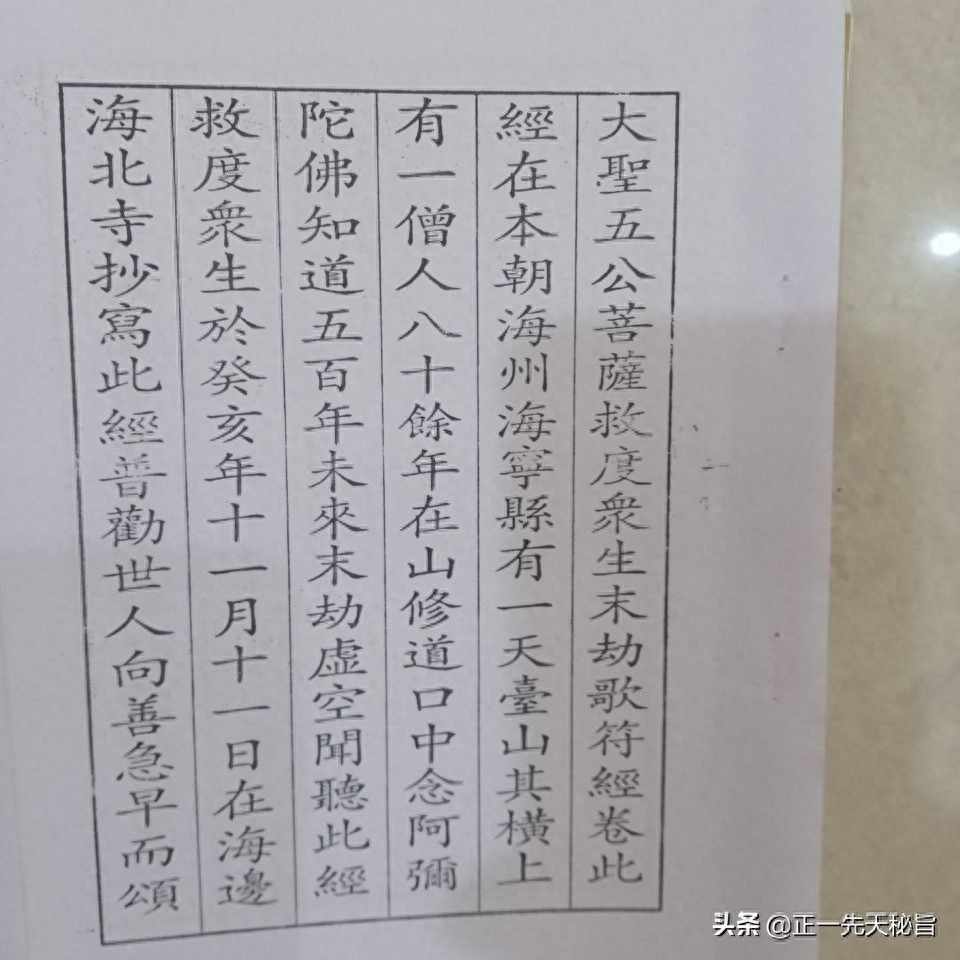 大聖五公菩薩救度衆生末劫歌符經卷此
經在本朝海州海寧縣有一天臺山其橫上
有一僧人八十餘年在山修道口中念阿彌
陀佛知道五百年未來末劫虛空聞聽此經
救度衆生於癸亥年十一月十一日在海邊
海北寺抄寫此經普勸世人向善急早而頌
头条 @正一先天秘旨